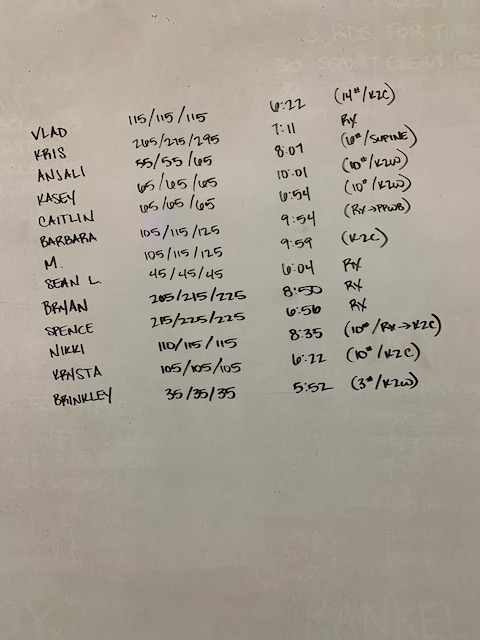 3 RDS FOR TIME
30 SQUAT CLEAN
VLAD 115/115/115 6:22 (14#/K2C)
KRIS 265/275/295 7:11 RX
ANJALI 55/55/65 8:07 (6#/SUPINE)
KASEY 65/65/65 10:01 (10#/K2W)
CAITLIN 65/65/65 6:54 (10#/K2W)
BARBARA 105/115/125 9:54 (RX→PPWB)
M. 105/115/125 9:59 (K2C)
SEAN L. 45/45/45 6:04 RX
BRYAN 205/215/225 8:50 RX
SPENCE 215/225/225 6:56 RX
NIKKI 110/115/115 8:35 (10#/RX→K2C)
KRYSTA 105/105/105 6:22 (10#/K2C)
BRINKLEY 35/35/35 5:52 (3#/K2W)